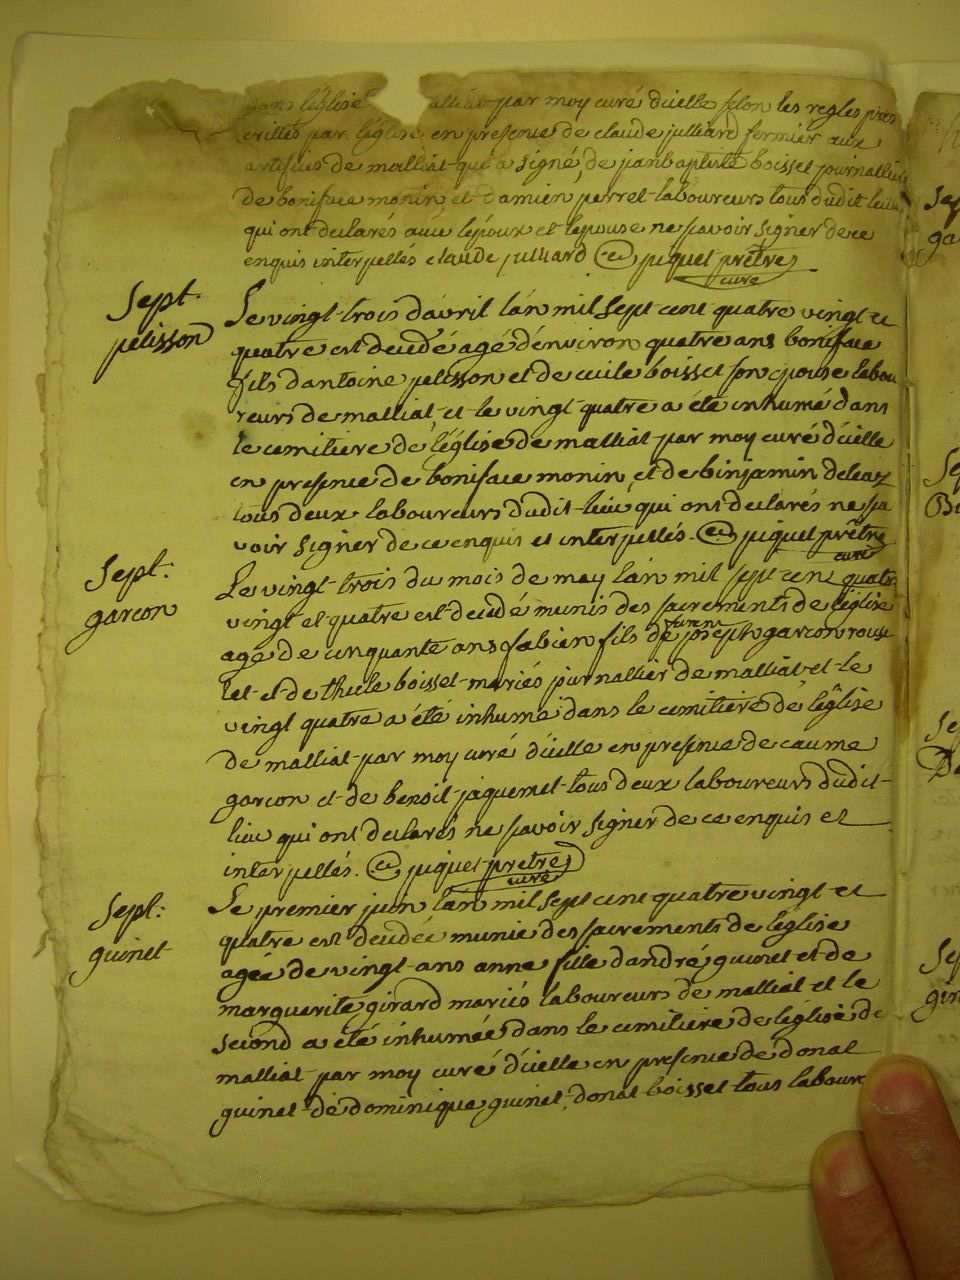 dans léglise malliat par moy curé dicelle selon les regles pres
crittes par léglise, en presence de claude julliard fermier aux
de malliat qui a signé, de janbaptiste boisset journallier
de boniface monin, et damien perret laboureurs tous dudit lieu
qui ont declarés avec lépoux et lépouse ne sçavoir signer de ce
enquis interpellés claude julliard piquet prêtre
curé
Sept.
pelisson
Le vingt-trois davril lán mil sept cent quatre vingt et
quatre est decedé agé dénviron quatre ans boniface
fils dantoine pelisson et de cecile boisset son epouse labou
reurs de malliat et le vingt quatre a été inhumé dans
le cemitiere de léglise de malliat par moy curé dicelle
en presence de boniface monin, et de binjamin deleaz
tous deux laboureurs dudit lieu qui ont declarés ne sça
voir signer de ce enquis et interpellés. piquet prêtre
curé
Sept:
garcon
Le vingt-trois du mois de may lán mil sept cent quatre
vingt et quatre est decedé munis des sacrements de léglise
agé de cinquante ans fabien fils de joseph garcon rousse
let et de thecle boisset mariés journallier de malliat et le
vingt quatre a été inhumé dans le cemitiere de léglise
de malliat par moy curé dicelle en presence de caume
garcon et de benoit jaquemet tous deux laboureurs dudit
lieu qui ont declarés ne sçavoir signer de ce enquis et
interpellés. piquet prêtre
curé
Sept:
guinet
Le premier juin lán mil sept cent quatre vingt et
quatre est decedée munie des sacrements de léglise
agée de vingt ans anne fille dandré guinet et de
marguerite girard mariés laboureurs de malliat et le
second a été inhumée dans le cemitiere de léglise de
malliat par moy curé dicelle en presence de donat
guinet de dominique guinet, donat boisset tous labour